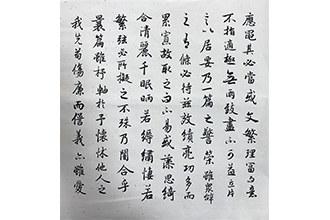 應繩其必當或文繁理富而意
不指適極無兩致盡不可益立片
言以居要乃一篇之警策雖眾辭
之有條必待茲而效績亮功多而
累寡故取足而不易或藻思綺
合清麗千眠炳若縟繡悽若
繁弦必所擬之不殊乃闇合乎
曩篇雖杼軸於予懷怵他人之
我先苟傷廉而愆義亦雖愛